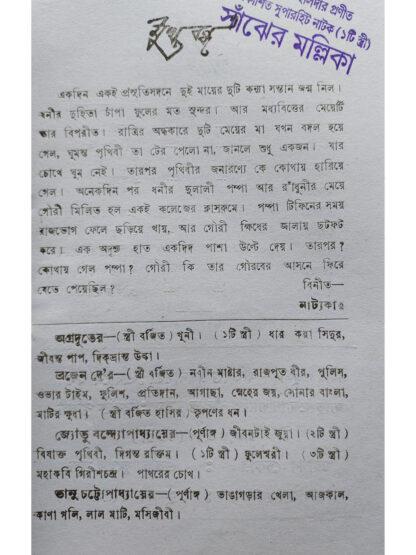 প্রকাশিত সুপারহিট নাটক (১টি স্ত্রী)
সাঁঝের মল্লিকা
একদিন একই প্রসূতিসদনে দুই মায়ের দুটি কন্যা সন্তান জন্ম নিল।
ধনীর দুহিতা চাঁপা ফুলের মত সুন্দর। আর মধ্যবিত্তের মেয়েটি
তার বিপরীত। রাত্রির অন্ধকারে দুটি মেয়ের মা যখন বদল হয়ে
গেল, ঘুমন্ত পৃথিবী তা টের পেলো না, জানলে শুধু একজন। যার
চোখে ঘুম নেই। তারপর পৃথিবীর জনারণ্যে কে কোথায় হারিয়ে
গেল। অনেকদিন পর ধনীর দুলালী পম্পা আর রাঁধুনীর মেয়ে
গৌরী মিলিত হল একই কলেজের ক্লাসরুমে। পম্পা টিফিনের সময়
রাজভোগ ফেলে ছড়িয়ে খায়, আর গৌরী ক্ষিধের জ্বালায় ছটফট
করে। এক অদৃশ্য হাত একদিন পাশা উল্টে দেয়। তারপর?
কোথায় গেল পম্পা? গৌরী কি তার গৌরবের আসনে ফিরে
যেতে পেয়েছিল?
বিনীত—
নাট্যকার
অগ্রদূতের—(স্ত্রী বর্জিত) খুনী। (১টি স্ত্রী) ধার করা সিঁদুর,
জীবন্ত পাপ, দিকভ্রান্ত উল্কা।
ব্রজেন দে'র—(স্ত্রী বর্জিত) নবীন মাষ্টার, রাজপুত বীর, পুলিস,
ওভার টাইম, ফুলিশ, প্রতিদান, আগাছা, স্নেহের জয়, সোনার বাংলা,
মাটির ক্ষুধা। (স্ত্রী বর্জিত হাসির) কৃপণের ধন।
জ্যোতু বন্দ্যোপাধ্যায়ের—(পূর্ণাঙ্গ) জীবনটাই জুয়া। (২টি স্ত্রী)
বিষাক্ত পৃথিবী, দিগন্ত রক্তিম। (১টি স্ত্রী) ফুলেশ্বরী। (৩টি স্ত্রী)
মহাকবি গিরীশচন্দ্র। পাথরের চোখ।
ভানু চট্টোপাধ্যায়ের—(পূর্ণাঙ্গ) ভাঙাগড়ার খেলা, আজকাল,
কাণা গলি, লাল মাটি, মসিজীবী।